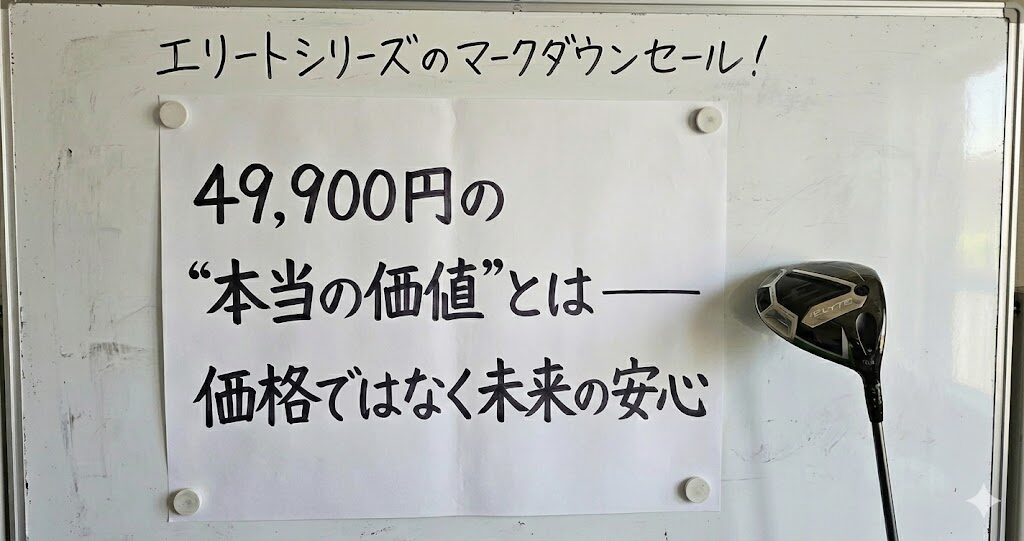 エリートシリーズのマークダウンセール!
49,900円の
“本当の価値”とは──
価格ではなく未来の安心
ELYTE